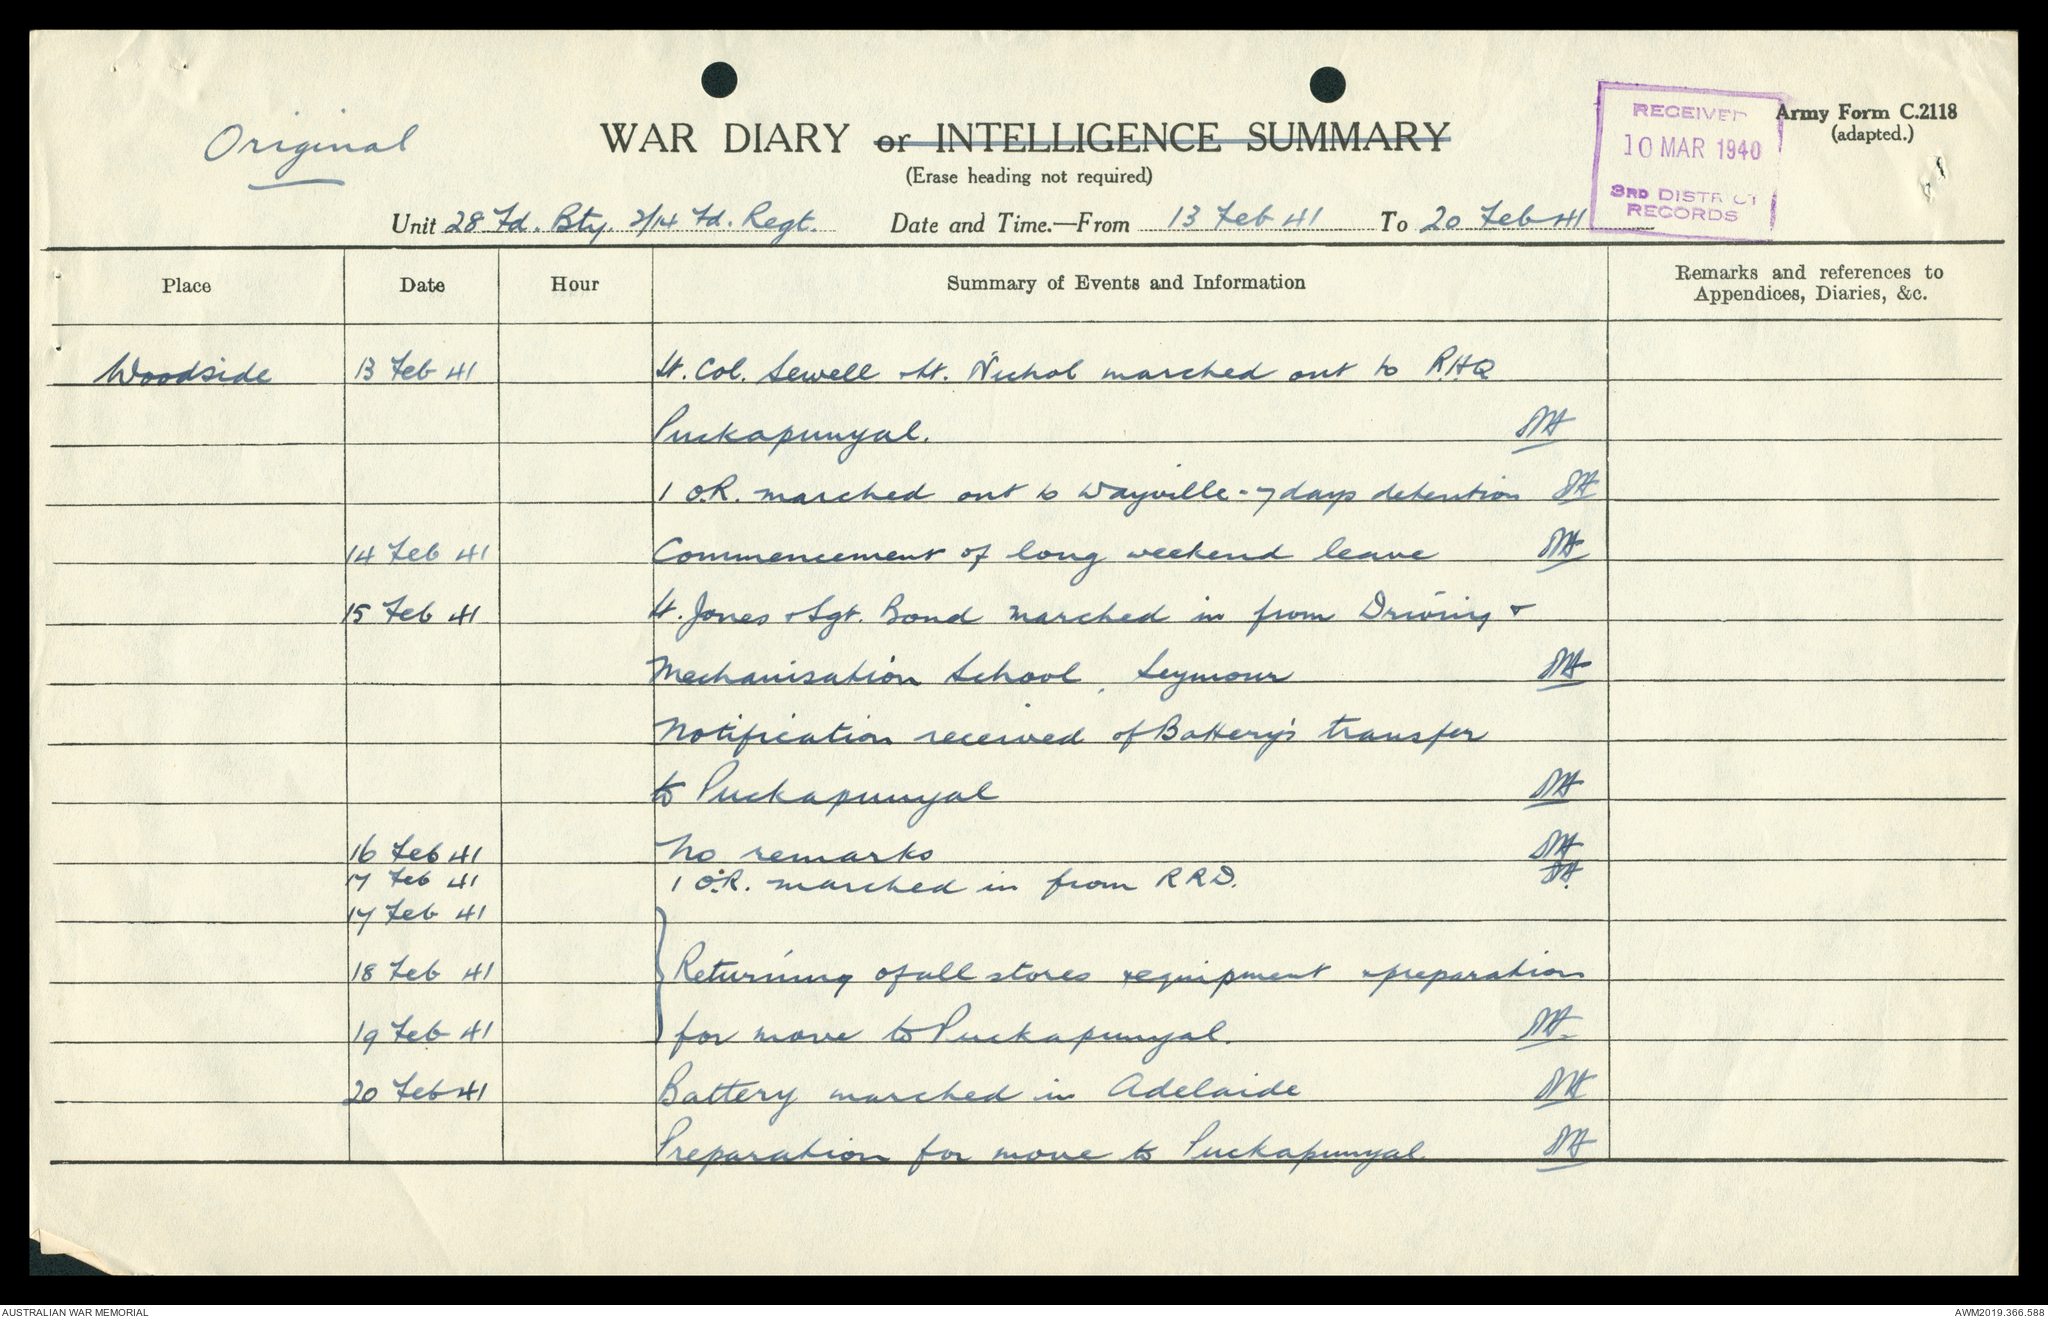 Original
WAR DIARY or INTELLIGENCE SUMMARY
(Erase heading not required)
Army Form C.2118
(adapted.)
RECEIVED
10 MAR 1940
3RD DISTRICT
RECORDS
Unit 28 Fd. Bty. 2/14 Fd. Regt. Date and Time.—From 13 Feb 41 To 20 Feb 41
Place Date Hour Summary of Events and Information Remarks and references to
Appendices, Diaries, &c.
Woodside 13 Feb 41 Lt. Col. Sewell & Lt. Nichol marched out to R.H.Q
Puckapunyal.
1 O.R. marched out to Wayville - 7 days detention
14 Feb 41 Commencement of long weekend leave
15 Feb 41 Lt. Jones & Sgt. Bond marched in from Driving &
Mechanisation School, Seymour
Notification received of Battery's transfer
to Puckapunyal
16 Feb 41 No remarks
17 Feb 41 1 O.R. marched in from R R D.
17 Feb 41
18 Feb 41 Returning of all stores & equipment & preparation
19 Feb 41 for move to Puckapunyal.
20 Feb 41 Battery marched in Adelaide
Preparation for move to Puckapunyal.
AUSTRALIAN WAR MEMORIAL AWM2019.366.588